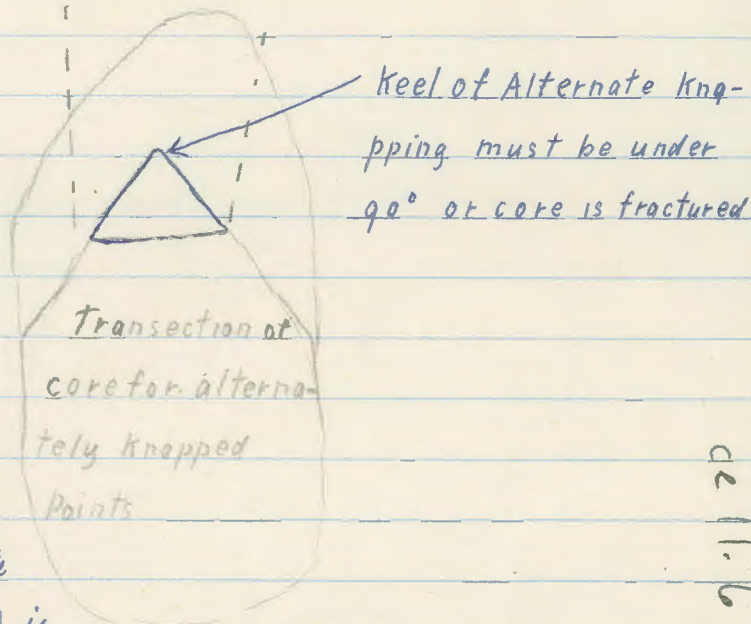 Keel of Alternate Kna-
pping must be under
90° or core is fractured
Transection of
core for alterna-
tely Knapped
Points
is